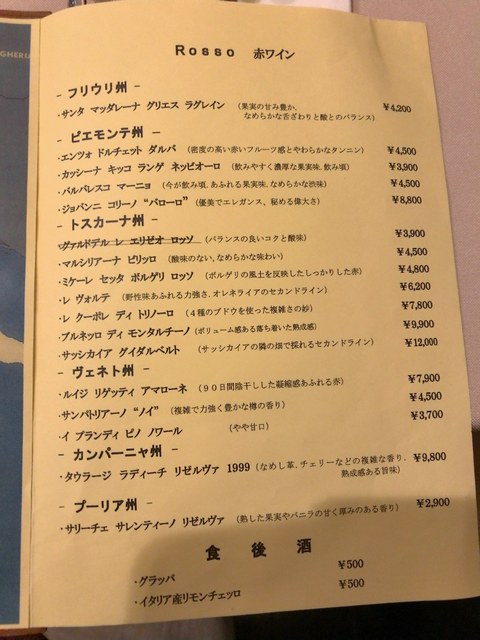 GHERIA
Rosso 赤ワイン
- フリウリ州 -
・サンタ マッダレーナ グリエス ラグレイン (果実の甘み豊か、なめらかな舌ざわりと酸とのバランス) ¥4,200
- ピエモンテ州 -
・エンツォ ドルチェット ダルバ (密度の高い赤いフルーツ感とやわらかなタンニン) ¥4,500
・カッシーナ キッコ ランゲ ネッビオーロ (飲みやすく濃厚な果実味、飲み頃) ¥3,900
・バルバレスコ マーニョ (今が飲み頃、あふれる果実味、なめらかな渋味) ¥4,500
・ジョバンニ コリーノ “バローロ” (優美でエレガンス、秘める偉大さ) ¥8,800
- トスカーナ州 -
・ヴァルドデル レ エリゼオ ロッソ (バランスの良いコクと酸味) ¥3,900
・マルシリアーナ ピリッロ (酸味のない、なめらかな味わい) ¥4,500
・ミケーレ セッタ ボルゲリ ロッソ (ボルゲリの風土を反映したしっかりした赤) ¥4,800
・レ ヴォルテ (野性味あふれる力強さ、オレネライアのセカンドライン) ¥6,200
・レ クーポレ ディ トリノーロ (4種のブドウを使った複雑さの妙) ¥7,800
・ブルネッロ ディ モンタルチーノ (ボリューム感ある落ち着いた熟成感) ¥9,900
・サッシカイア グイダルベルト (サッシカイアの隣の畑で採れるセカンドライン) ¥12,000
- ヴェネト州 -
・ルイジ リゲッティ アマローネ (90日間陰干しした凝縮感あふれる赤) ¥7,900
・サンパトリアーノ “ノイ” (複雑で力強く豊かな樽の香り) ¥4,500
・イ ブランディ ピノ ノワール (やや甘口) ¥3,700
- カンパーニャ州 -
・タウラージ ラディーチ リゼルヴァ 1999 (なめし革、チェリーなどの複雑な香り、熟成感ある旨味) ¥9,800
- プーリア州 -
・サリーチェ サレンティーノ リゼルヴァ (熟した果実やバニラの甘く厚みのある香り) ¥2,900
食後酒
・グラッパ ¥500
・イタリア産リモンチェッロ ¥500